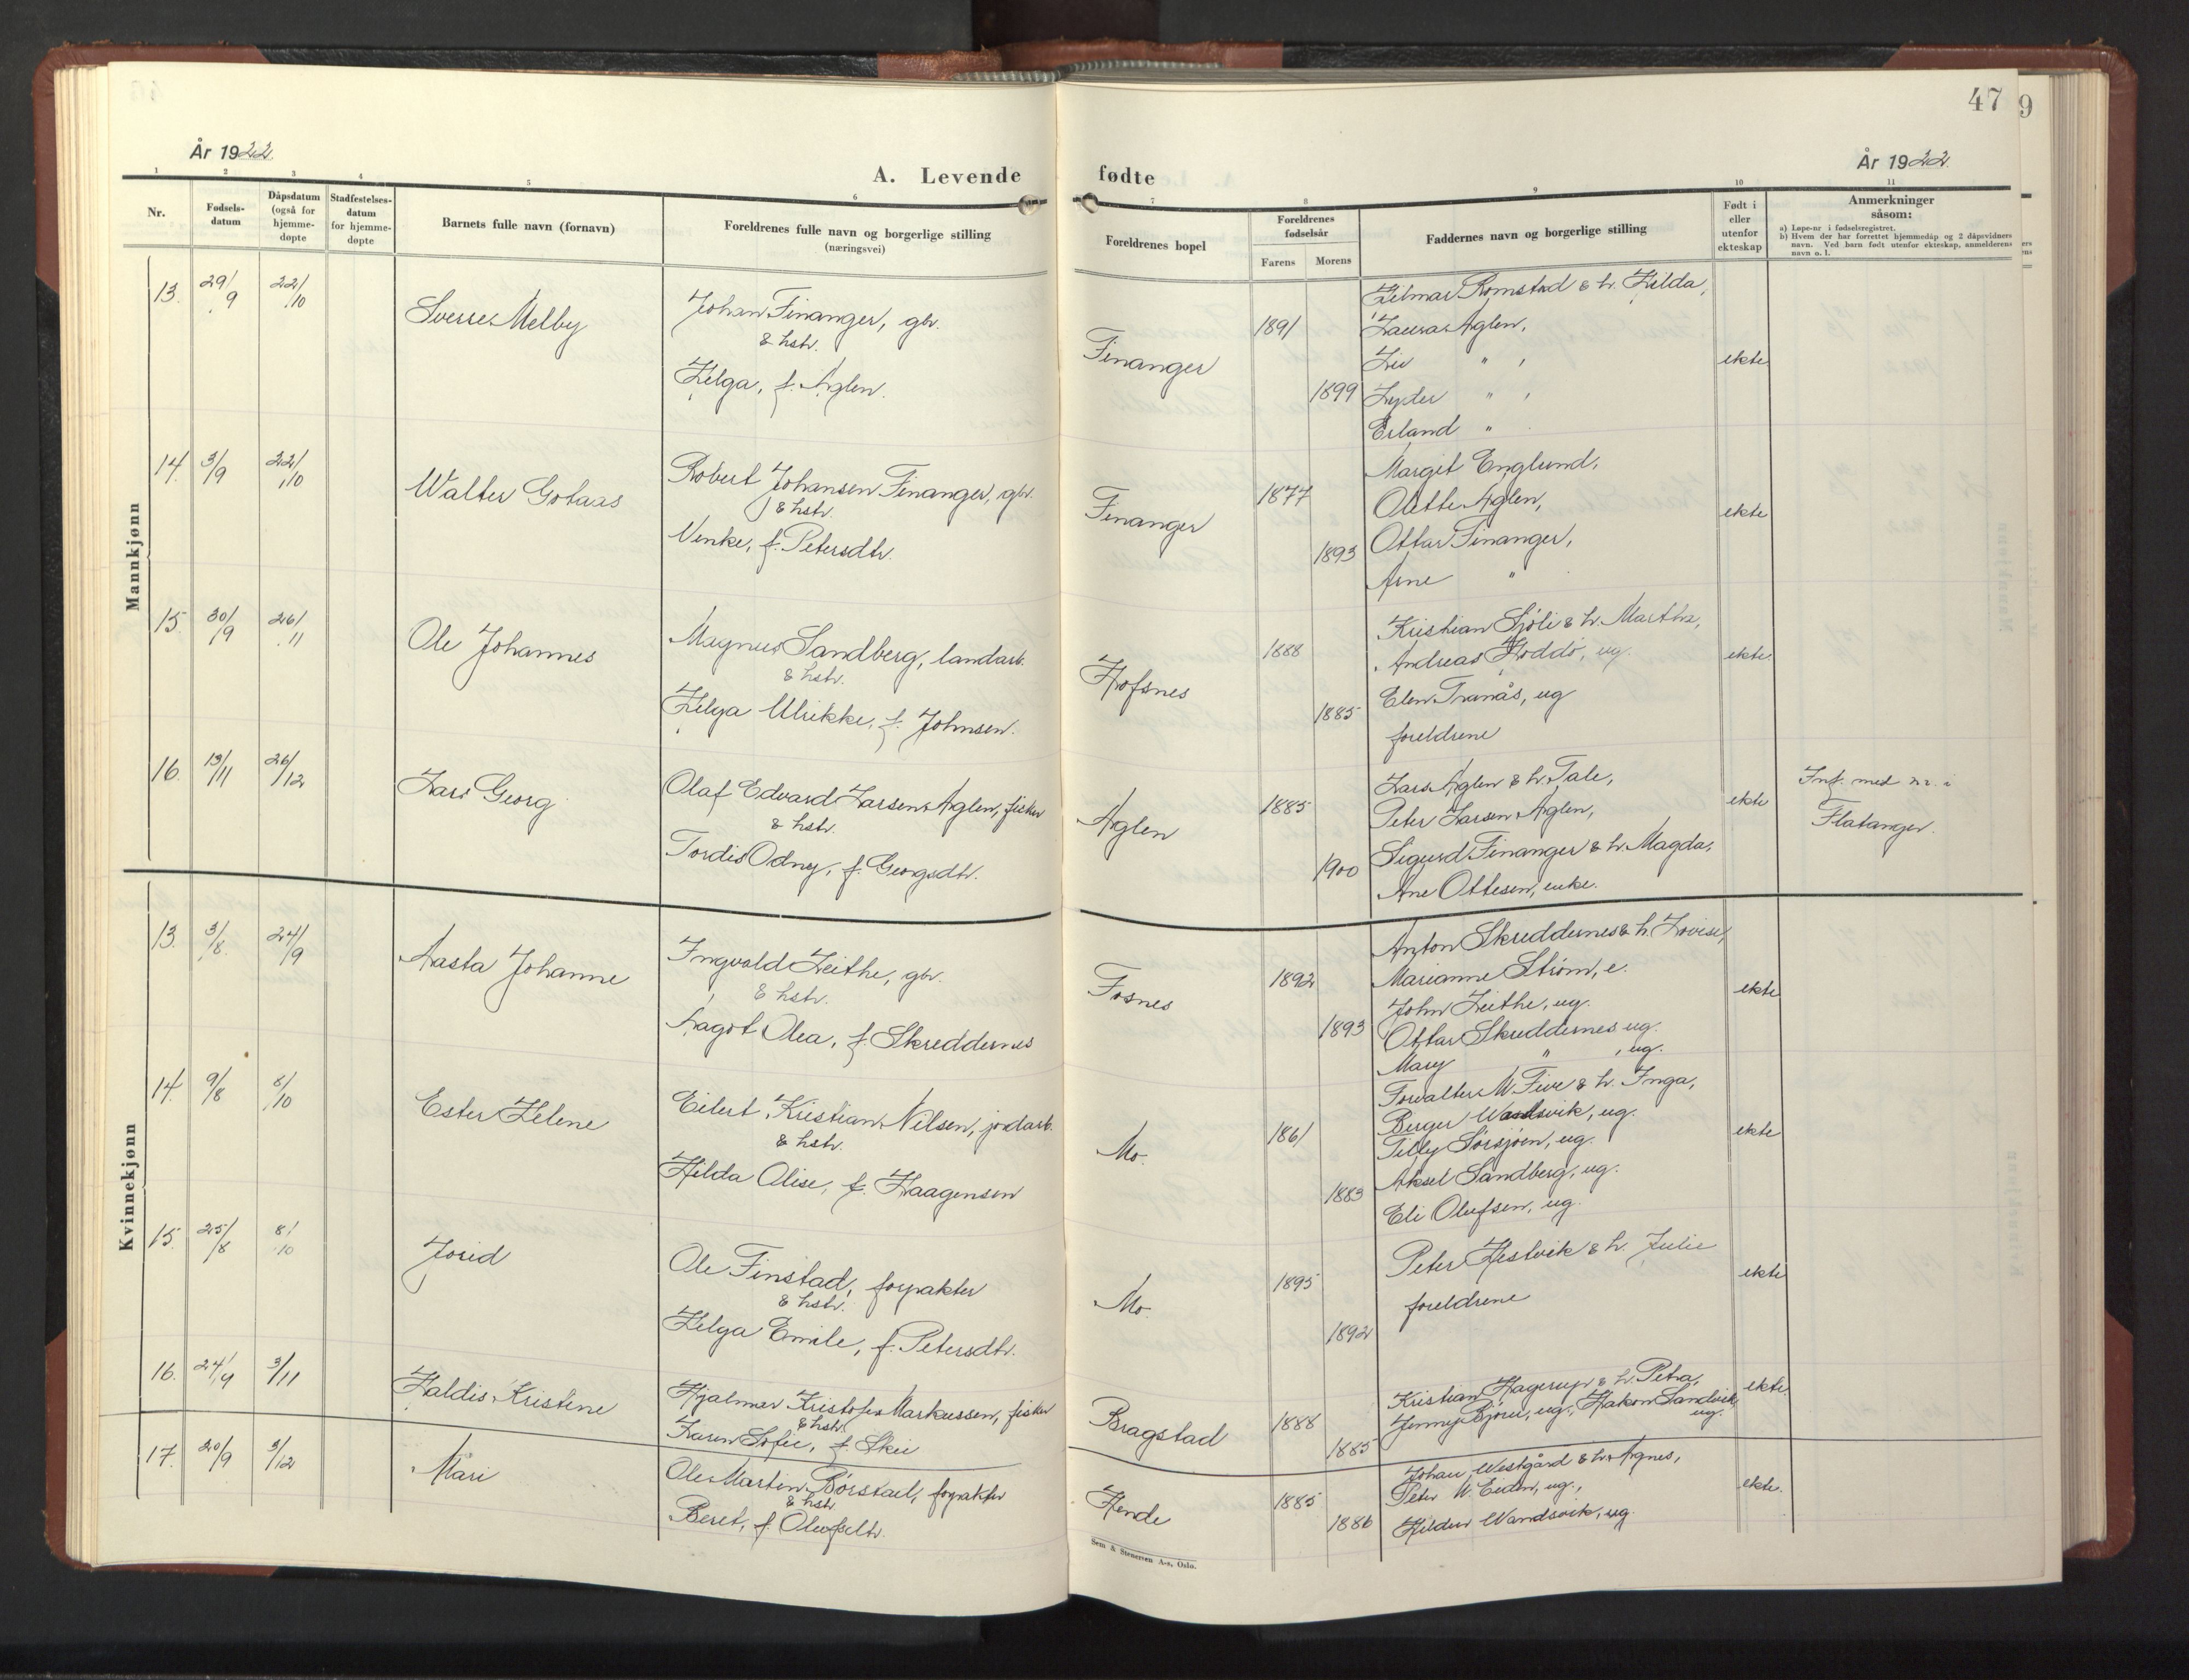 47
9
År 1922.
År 1922.
A. Levende
fødte
1
2
3
4
5
6
7
8
9
10
11
Nr.
Fødsels-
datum
Dåpsdatum
(også for
hjemme-
døpte
Stadfestelses-
datum
for hjemme-
døpte
Barnets fulle navn (fornavn)
Foreldrenes fulle navn og borgerlige stilling
(næringsvei)
Foreldrenes bopel
Foreldrenes
fødselsår
Farens
Morens
Faddernes navn og borgerlige stilling
Født i
eller
utenfor
ekteskap
Anmerkninger
såsom:
a) Løpe-nr i fødselsregistret.
b) Hvem der har forrettet hjemmedåp og 2 dåpsvidners
navn. Ved barn født utenfor ekteskap, anmelderens
navn o. l.
Mannkjønn
13. 29/9 22/10
Sverre Melby
Johan Finanger, gbr.
& hstr.
Helga, f. Aglen.
Finanger
1891
1899
Hilmar Romstad & h. Hilda,
Laura Aglen,
Liv " ,
Lyder " ,
Erland "
ekte
14. 3/9 22/10
Walter Gotaas
Robert Johansen Finanger, gbr.
& hstr.
Venke, f. Petersdtr.
Finanger
1877
1893
Margit Englund,
Olette Aglen,
Ottar Finanger,
Arne "
ekte
15. 30/9 26/11
Ole Johannes
Magnus Sandberg, landarb.
& hstr.
Helga Ulrikke, f. Johnsen.
Hofsnes
1888
1885
Kristian Sjöli & h. Martha,
Andreas Hoddö, ug.
Elen Tranås, ug
foreldrene
ekte.
16. 13/11 26/12
Lars Georg
Olaf Edvard Larsen Aglen, fisker
& hstr.
Tordis Odny, f. Georgsdtr.
Aglen
1885
1900
Lars Aglen & h. Tale,
Peter Larsen Aglen,
Sigurd Finanger & h. Magda,
Ane Ottesen, enke.
ekte
Inf. med nr. i
Flatanger.
Kvinnekjønn
13. 3/8. 24/9
Aasta Johanne
Ingvald Leithe, gbr.
& hstr.
Aagot Olea, f. Skreddernes
Fosnes
1892
1893
Anton Skreddernes & h. Lovise,
Marianne Ström, e.
John Leithe, ug.
Ottar Skreddernes ug.
Mary " , ug.
ekte
14. 9/8 8/10
Ester Helene
Eilert Kristian Nilsen, jordarb.
& hstr.
Hilda Alise, f. Haagensen
Mo.
1861
1883
Forvalter M. Five & h. Inga,
Birger Wandsvik, ug.
Tilly Sörsjöen, ug.
Aksel Sandberg, ug.
Eli Olufsen, ug.
ekte
15. 25/8 8/10
Jorid
Ole Finstad, forpakter
& hstr.
Helga Emilie, f. Petersdtr.
Mo
1895
1892
Peter Hestvik & h. Julie
foreldrene
ekte
16. 24/9 3/11
Haldis Kristine
Hjalmar Kristofer Markussen, fisker
& hstr.
Karen Sofie, f. Skei
Bragstad
1888
1885
Kristian Hagerup & h. Petra,
Jenny Björu, ug., Hakon Sandvik,
ug.
ekte.
17. 20/9 3/12
Mari
Ole Martin Börstad, forpakter
& hstr
Beret, f. Olufsdtr.
Hende
1885
1886
Johan Westgård & h. Agnes,
Peter M. Eiden, ug.,
Hildur Wandsvik, ug.
ekte.
Sem & Stenersen A-s, Oslo.